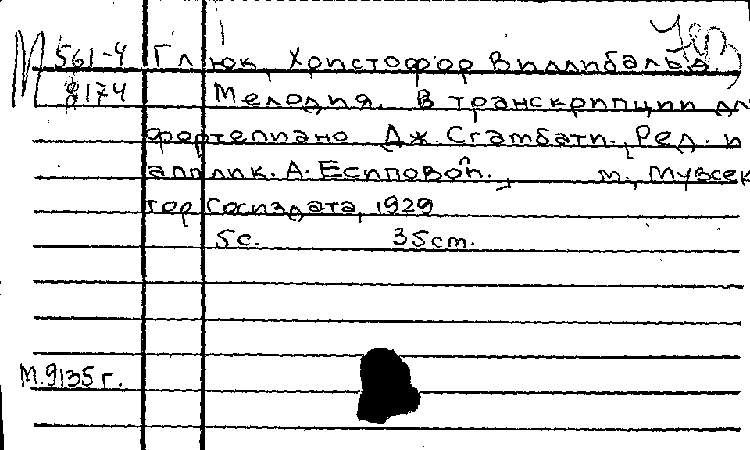 М 561-4 Глюк, Христофор Виллибальд.
8174 Мелодия. В транскрипции для
фортепиано Дж. Сгамбати., Ред. и
апплик. А. Есиповой., м., Музсек
тор Госиздата, 1929
5с. 35см.
М.9135г.